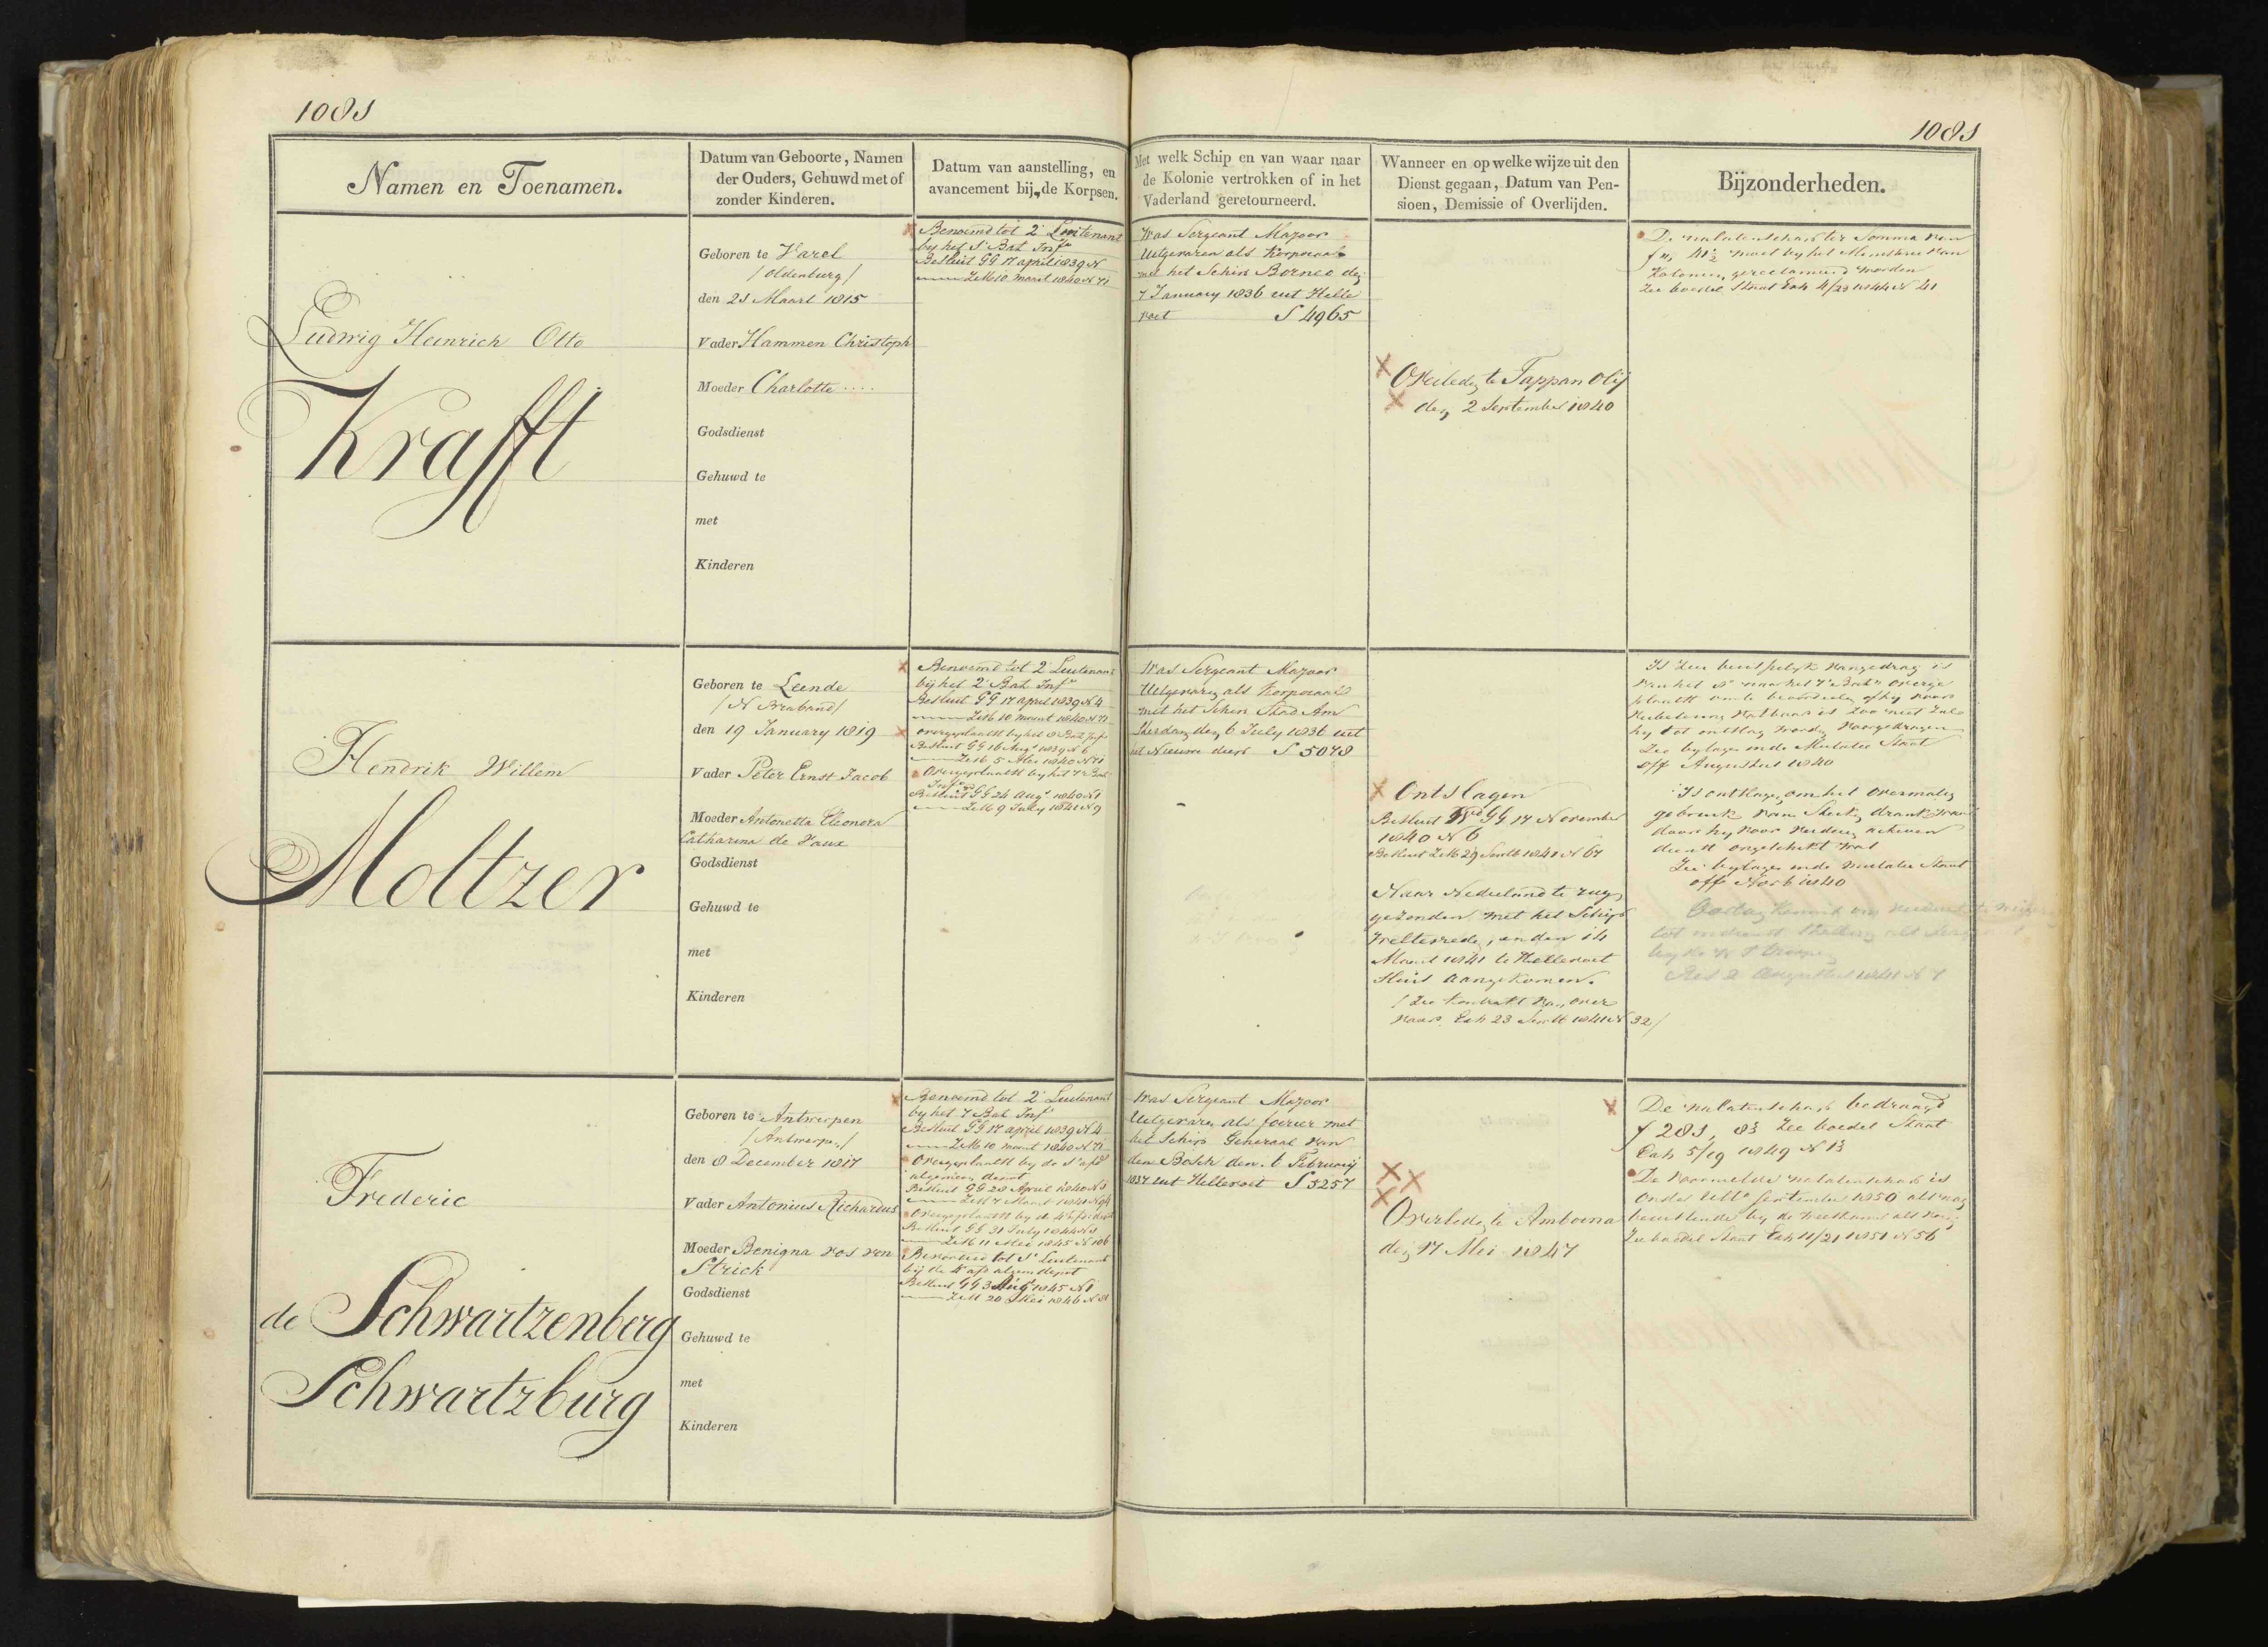 1081
1081
Namen en Toenamen.
Datum van Geboorte, Namen
der Ouders, Gehuwd met of
zonder Kinderen.
Datum van aanstelling, en
avancement bij de Korpsen.
Met welk Schip en van waar naar
de Kolonie vertrokken of in het
Vaderland geretourneerd.
Wanneer en op welke wijze uit den
Dienst gegaan, Datum van Pen-
sioen, Demissie of Overlijden.
Bijzonderheden.
Ludwig Heinrich Otto
Krafft
Geboren te Varel
/Oldenburg/
den 21 Maart 1815
Vader Hammen Christoph
Moeder Charlotte ....
Godsdienst
Gehuwd te
met
Kinderen
Benoemd tot 2e Luitenant
by het 1e Bat Infie
Besluit GG 17 april 1839 N
ZM 10 maart 1840 N 71
Was Sergeant Majoor
Uitgevaren als Korporaal
met het Schip Borneo den
7 January 1836 uit Helle
voet S 4965
Overleden te Tappan Olij
den 2 September 1840
De nalatenschap ter Somma van
moet by het Ministerie van
Kolonien gereclameerd worden
Zie boedel Staat Exh 4/23 1844 N 41
Hendrik Willem
Moltzer
Geboren te Leende
/N Braband/
den 19 January 1819
Vader Peter Ernst Jacob
Moeder Antonetta Eleonora
Catharina de Vaux
Godsdienst
Gehuwd te
met
Kinderen
Benoemd tot 2e Luitenant
bij het 2e Bat Infie
Besluit GG 17 april 1839 N 4
ZM 10 maart 1840 N 71
overgeplaatst by het 8 Bat Infie
Besluit GG 16 Augt 1839 N 6
ZM 5 Mei 1840 N 71
Overgeplaatst by het 7e Bat
Infie
Besluit GG 24 Augt 1840 N 1
ZM 9 July 1841 N 9
Was Sergeant Majoor
Uitgevaren als Korporaal
met het Schip Stad Am
sterdam den 6 July 1836 uit
het Nieuwe diep S 5078
Ontslagen
Besluit GG 17 November
1840 N 6
Besluit ZM 29 Septb 1841 N 67
Naar Nederland te rug
gezonden met het Schip
Weltevrede, en den 14
Maart 1841 te Hellevoet
Sluis aangekomen.
/Zie Kontrakt van over
voer Exh 23 Septb 1841 N 32/
Is Zeer berispelyk van gedrag is
van het 8e naar het 7e Bat overge
plaatst om te beoordeelen of hij voor
verbetering vatbaar is zoo niet zal
hij tot ontslag worden voorgedragen
Zie bylage in de Mutatie Staat
off Augustus 1840
Is ontslagen om het overmatig
gebruik van Sterken drank waar
door hy voor verderen activen
dienst ongeschikt was
Zie bylage in de mutatie Staat
off Novb 1840
Res 2 Augustus 1841 N 7
Frederic
de Schwartzenberg
Schwartzburg
Geboren te Antwerpen
/Antwerpen/
den 8 December 1817
Vader Antonius Richardus
Moeder Benigna vos von
Strick
Godsdienst
Gehuwd te
met
Kinderen
Benoemd tot 2e Luitenant
by het 7 Bat Infie
Besluit GG 17 april 1839 N 4
ZM 10 maart 1840 N 71
Overgeplaatst by de 1e afd
algemeen depot
Besluit GG 28 April 1840 N 3
ZM 7 Maart 1841 N 94
Overgeplaatst by de 4e afd depot
Besluit GG 31 July 1844 N 3
ZM 11 Mei 1845 N 106
Benoemd tot 1e Luitenant
bij de 4e afd algem depot
Besluit GG 3 Aug 1845 N 1
ZM 20 Mei 1846 N 81
Was Sergeant Majoor
Uitgevaren als fourier met
het Schip Generaal van
den Bosch den 6 February
1837 uit Hellevoet S 5257
Overleden te Amboina
den 17 Mei 1847
De nalatenschap bedraagt
f 281, 83 Zie boedel Staat
Exh 5/19 1849 N 13
De voormelde nalatenschap is
onder Ulto September 1850 als nog
berustende by de Weeskamer
Zie boedel Staat Exh 11/21 1851 N 56